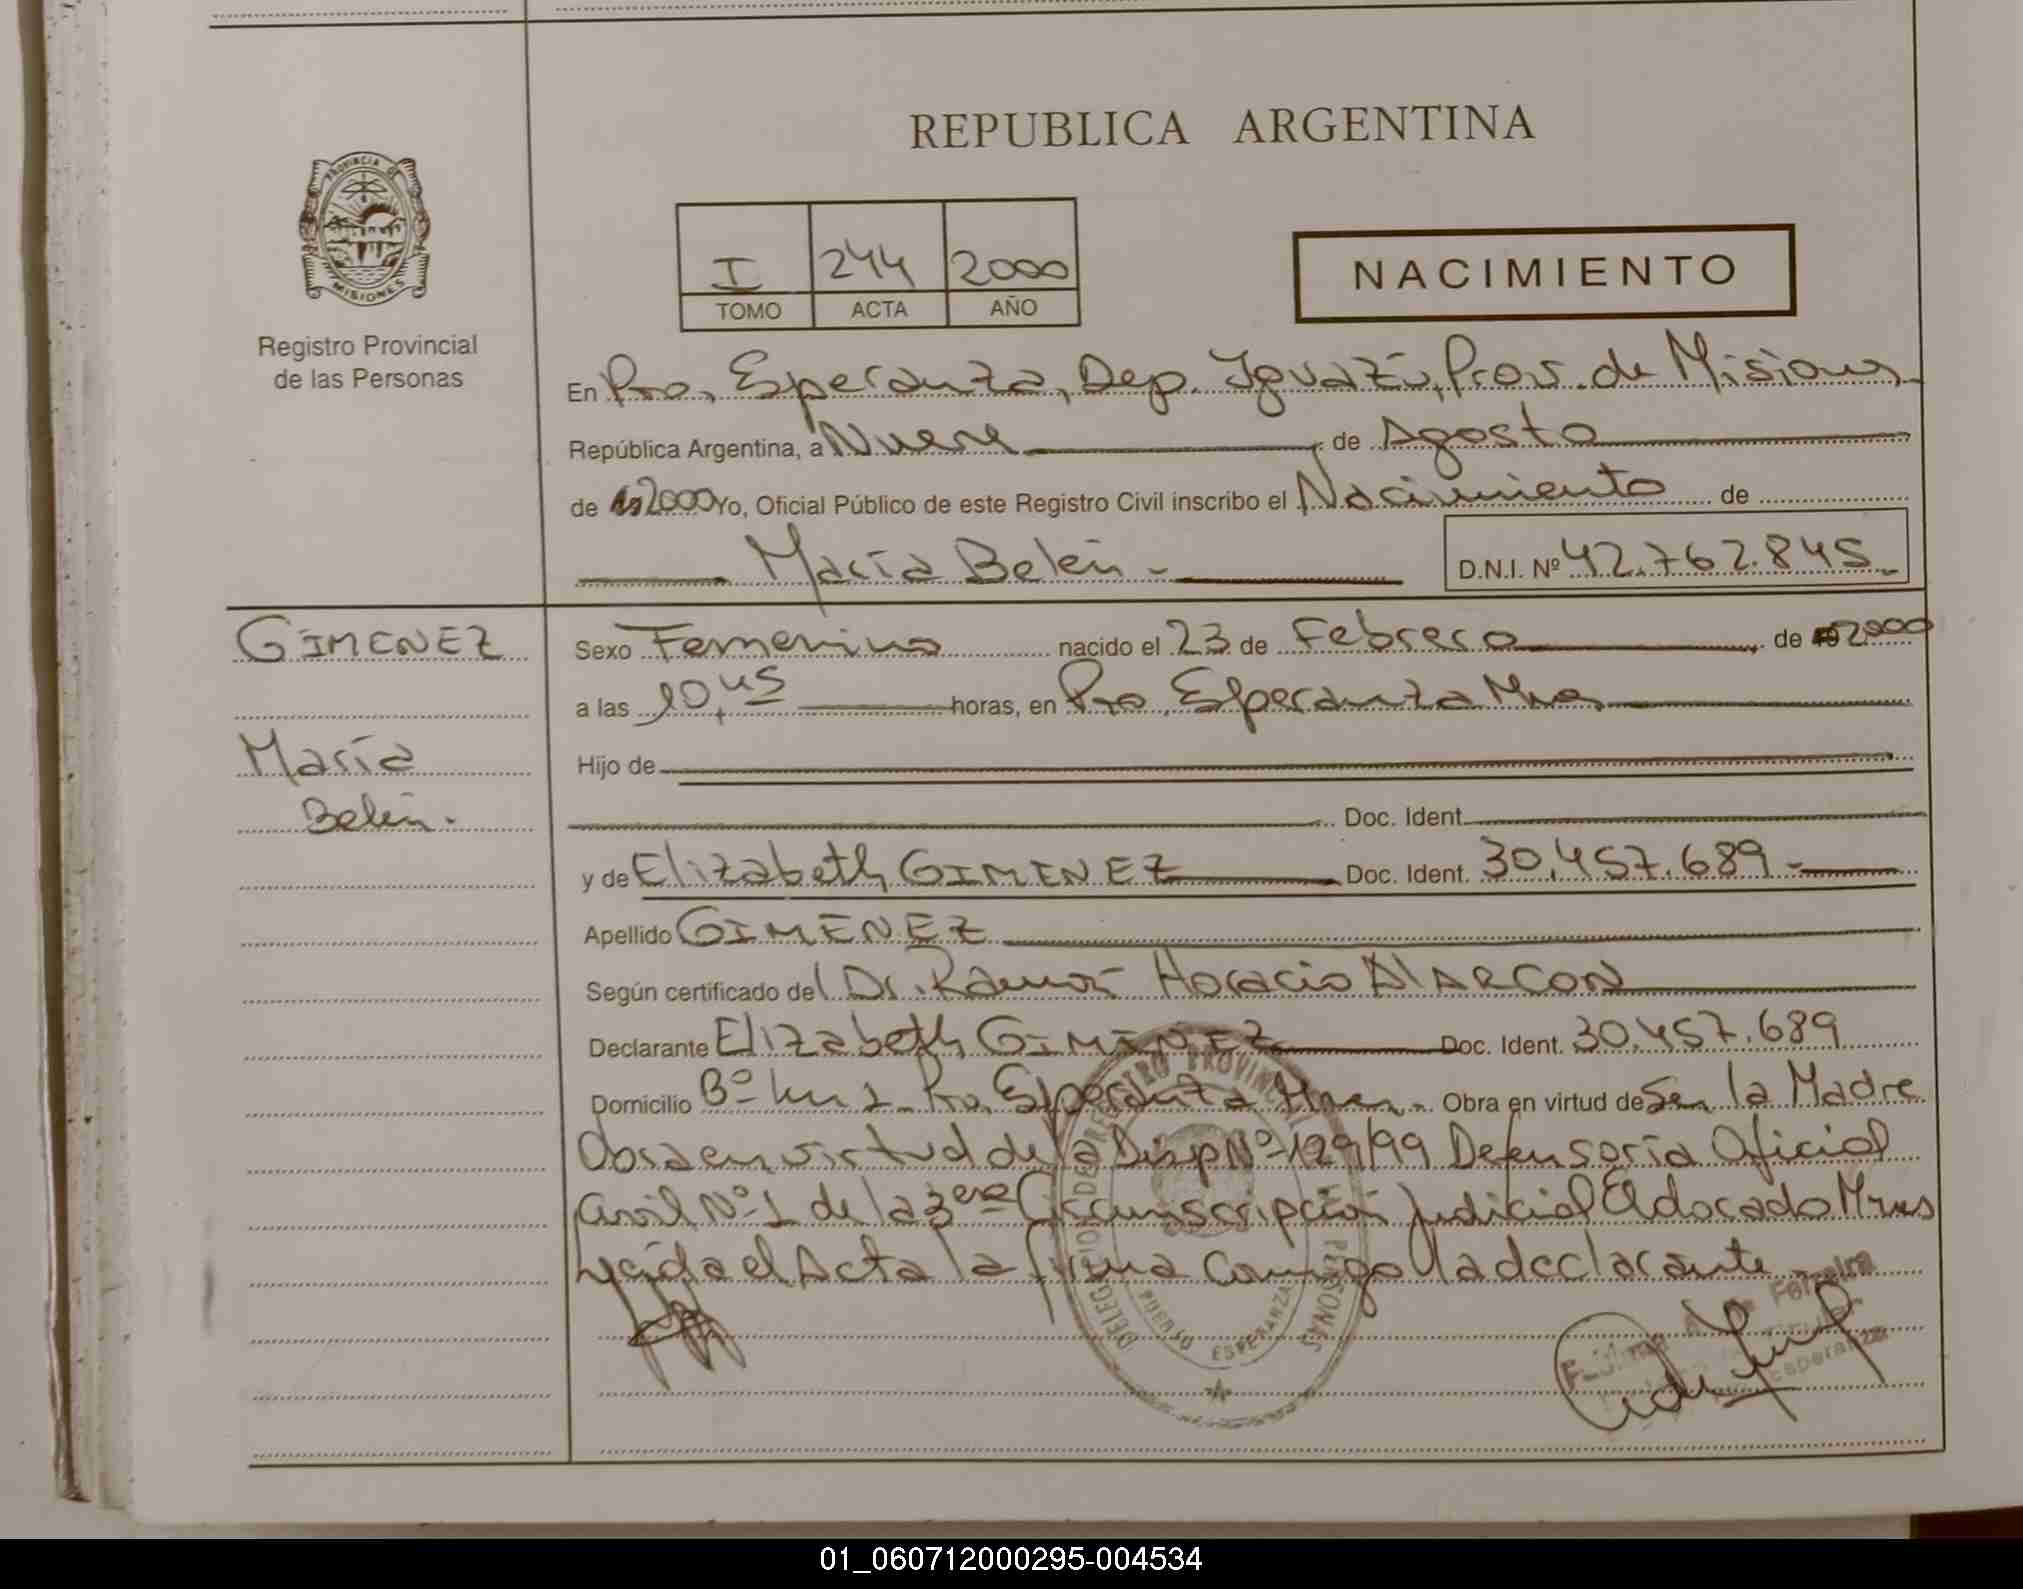 REPUBLICA ARGENTINA
PROVINCIA DE
MISIONES
Registro Provincial
de las Personas
I 244 2000
TOMO ACTA AÑO
NACIMIENTO
En Pto, Esperanza, Dep. Iguazú, Prov. de Misiones
República Argentina, a Nueve de Agosto
de 2000 Yo, Oficial Público de este Registro Civil inscribo el Nacimiento de
María Belén - D.N.I. Nº 42.762.845
GIMENEZ
María
Belén.
Sexo Femenino nacido el 23 de Febrero de 2000
a las 10,45 horas, en Pto Esperanza Mnes
Hijo de
Doc. Ident.
y de Elizabeth GIMENEZ Doc. Ident. 30.457.689-
Apellido GIMENEZ
Según certificado del Dr. Ramón Horacio AlARCON
Declarante Elizabeth GIMENEZ Doc. Ident. 30.457.689
Domicilio Bº Km 1 Pto Esperanza Mnes. Obra en virtud de Ser la Madre
Obra en virtud de la Disp Nº 129/99 Defensoría Oficial
Civil Nº 1 de la 3era Circunscripción Judicial Eldorado Mnes
Leída el Acta la firma Conmigo la declarante
DELEGACION DE REGISTRO PROVINCIAL
PERSONAS
PUERTO ESPERANZA
Ferreira
Esperanza
01_060712000295-004534